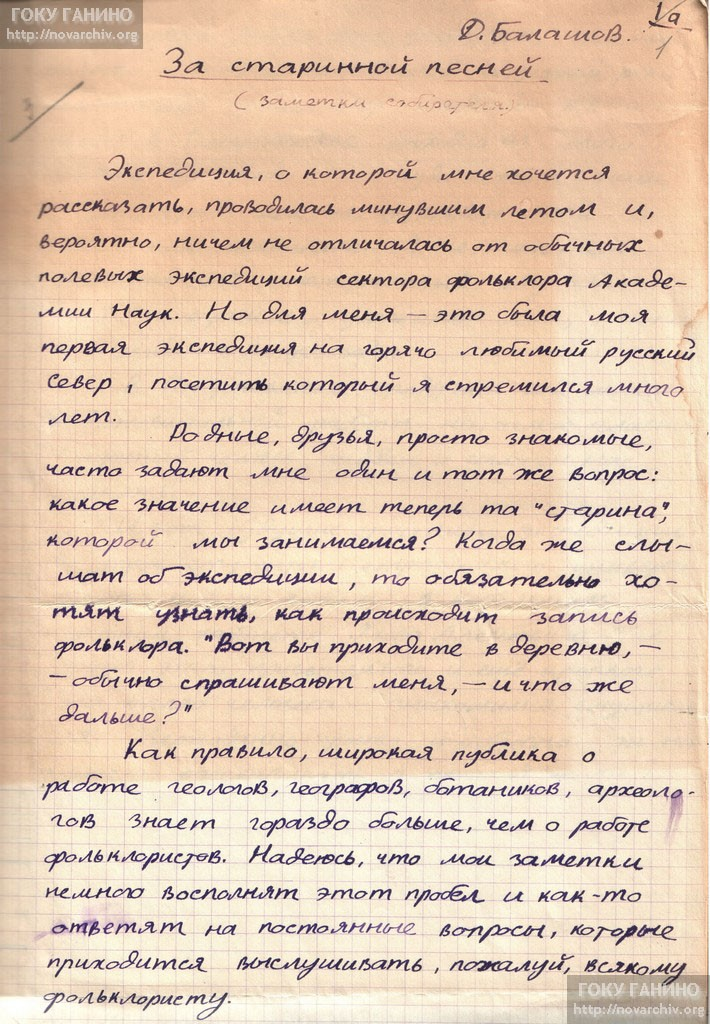 ГОКУ ГАНИНО
http://novarchiv.org
1/а
1
Д. Балашов.
За старинной песней
(заметки собирателя.)
Экспедиция, о которой мне хочется
рассказать, проводилась минувшим летом и,
вероятно, ничем не отличалась от обычных
полевых экспедиций сектора фольклора Акаде-
мии Наук. Но для меня – это была моя
первая экспедиция на горячо любимый русский
север, посетить который я стремился много
лет.
Родные, друзья, просто знакомые,
часто задают мне один и тот же вопрос:
какое значение имеет теперь та "старина",
которой мы занимаемся? Когда же слы-
шат об экспедиции, то обязательно хо-
тят узнать, как происходит запись
фольклора. "Вот вы приходите в деревню, –
– обычно спрашивают меня, – и что же
дальше?"
Как правило, широкая публика о
работе геологов, географов, ботаников, археоло-
гов знает гораздо больше, чем о работе
фольклористов. Надеюсь, что мои заметки
немного восполнят этот пробел и как-то
ответят на постоянные вопросы, которые
приходится выслушивать, пожалуй, всякому
фольклористу.
ГОКУ ГАНИНО
http://novarchiv.org